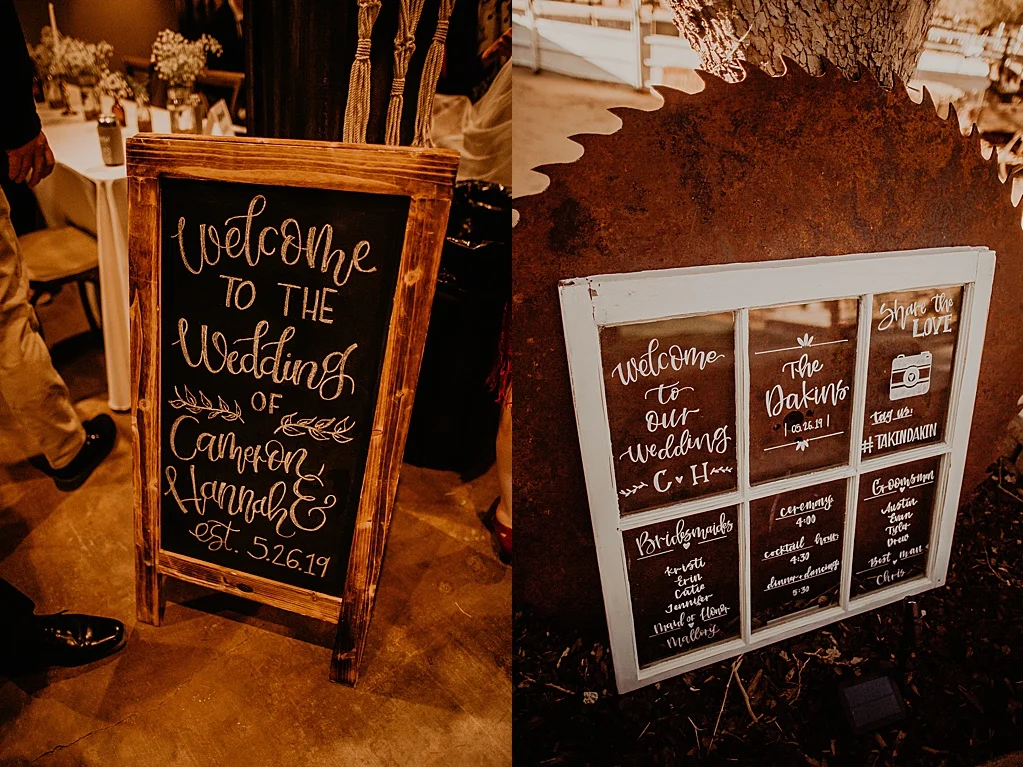 Welcome
TO THE
Wedding
OF
Cameron
Hannah &
est. 5.26.19
Welcome
to
our
wedding
C ♥ H
The
Dakins
| 05.26.19 |
Share the
LOVE
tag us!
#TAKINDAKIN
Bridesmaides
Kristi
Erin
Catie
Jennifer
Maid of Honor
Mallory
ceremony
4:00
cocktail hour
4:30
dinner + dancing
5:30
Groomsmen
Austin
Evan
Tyler
Drew
Best Man
Chris